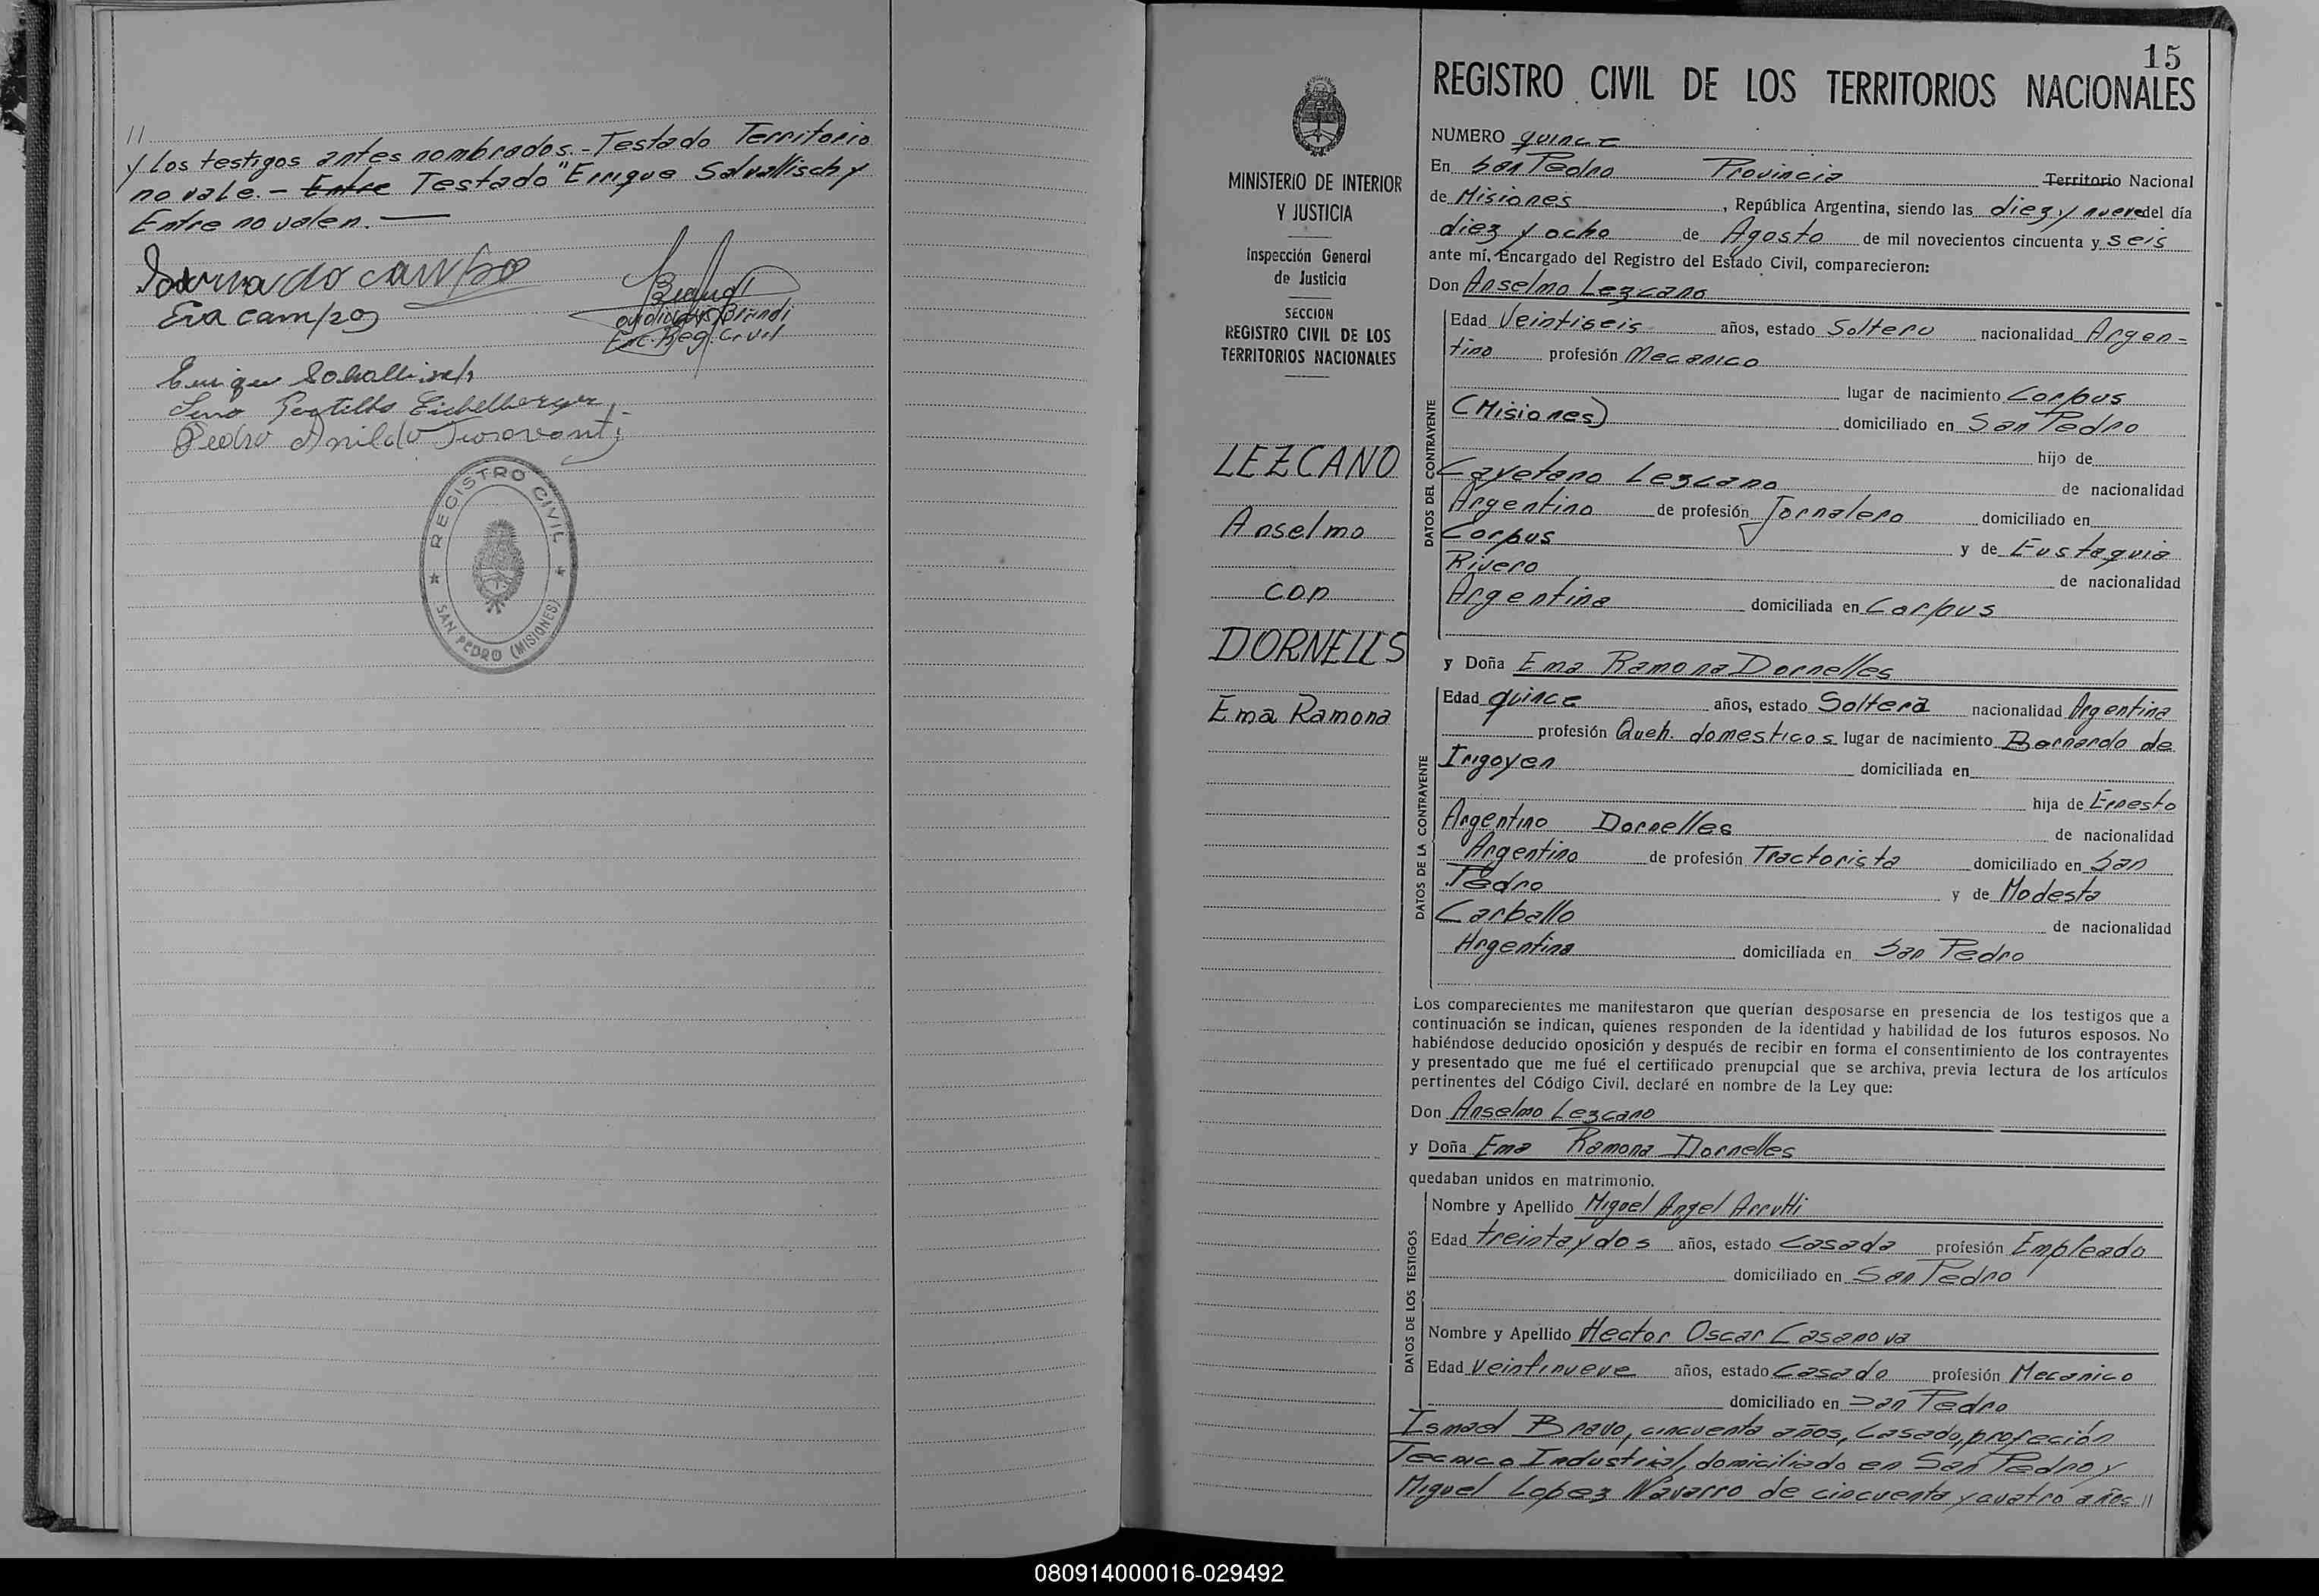 //
y los testigos antes nombrados.- Testado Territorio
no vale.- Entre Testado "Enrique Salvallisch y
Entre no valen.
Bernardo campo
Eva campos
Enc. Reg. Civil
Enrique
Pedro
REGISTRO CIVIL
SAN PEDRO (MISIONES)
15
REGISTRO CIVIL DE LOS TERRITORIOS NACIONALES
MINISTERIO DE INTERIOR
Y JUSTICIA
Inspección General
de Justicia
SECCION
REGISTRO CIVIL DE LOS
TERRITORIOS NACIONALES
LEZCANO
Anselmo
con
DORNELLS
Ema Ramona
NUMERO quince
En San Pedro Provincia Territorio Nacional
de Misiones, República Argentina, siendo las diez y nueve del día
diez y ocho de Agosto de mil novecientos cincuenta y seis
ante mí, Encargado del Registro del Estado Civil, comparecieron:
Don Anselmo Lezcano
DATOS DEL CONTRAYENTE
Edad Veintiseis años, estado Soltero nacionalidad Argen=
tino profesión Mecanico
lugar de nacimiento Corpus
(Misiones) domiciliado en San Pedro
hijo de
Cayetano Lezcano de nacionalidad
Argentino de profesión Jornalero domiciliado en
Corpus y de Eustaquia
Rivero de nacionalidad
Argentina domiciliada en Corpus
y Doña Ema Ramona Dornelles
DATOS DE LA CONTRAYENTE
Edad quince años, estado Soltera nacionalidad Argentina
profesión Queh. domesticos lugar de nacimiento Bernardo de
Irigoyen domiciliada en
hija de Ernesto
Argentino Dornelles de nacionalidad
Argentino de profesión Tractorista domiciliado en San
Pedro y de Modesta
Carballo de nacionalidad
Argentina domiciliada en San Pedro
Los comparecientes me manifestaron que querían desposarse en presencia de los testigos que a
continuación se indican, quienes responden de la identidad y habilidad de los futuros esposos. No
habiéndose deducido oposición y después de recibir en forma el consentimiento de los contrayentes
y presentado que me fué el certificado prenupcial que se archiva, previa lectura de los artículos
pertinentes del Código Civil, declaré en nombre de la Ley que:
Don Anselmo Lezcano
y Doña Ema Ramona Dornelles
quedaban unidos en matrimonio.
DATOS DE LOS TESTIGOS
Nombre y Apellido Miguel Angel Arrutti
Edad treinta y dos años, estado casada profesión Empleado
domiciliado en San Pedro
Nombre y Apellido Hector Oscar Casanova
Edad veintinueve años, estado Casado profesión Mecanico
domiciliado en San Pedro
Ismael Bravo, cincuenta años, casado, profeción
Tecnico Industrial, domiciliado en San Pedro y
Miguel Lopez Navarro de cincuenta y cuatro años //
080914000016-029492